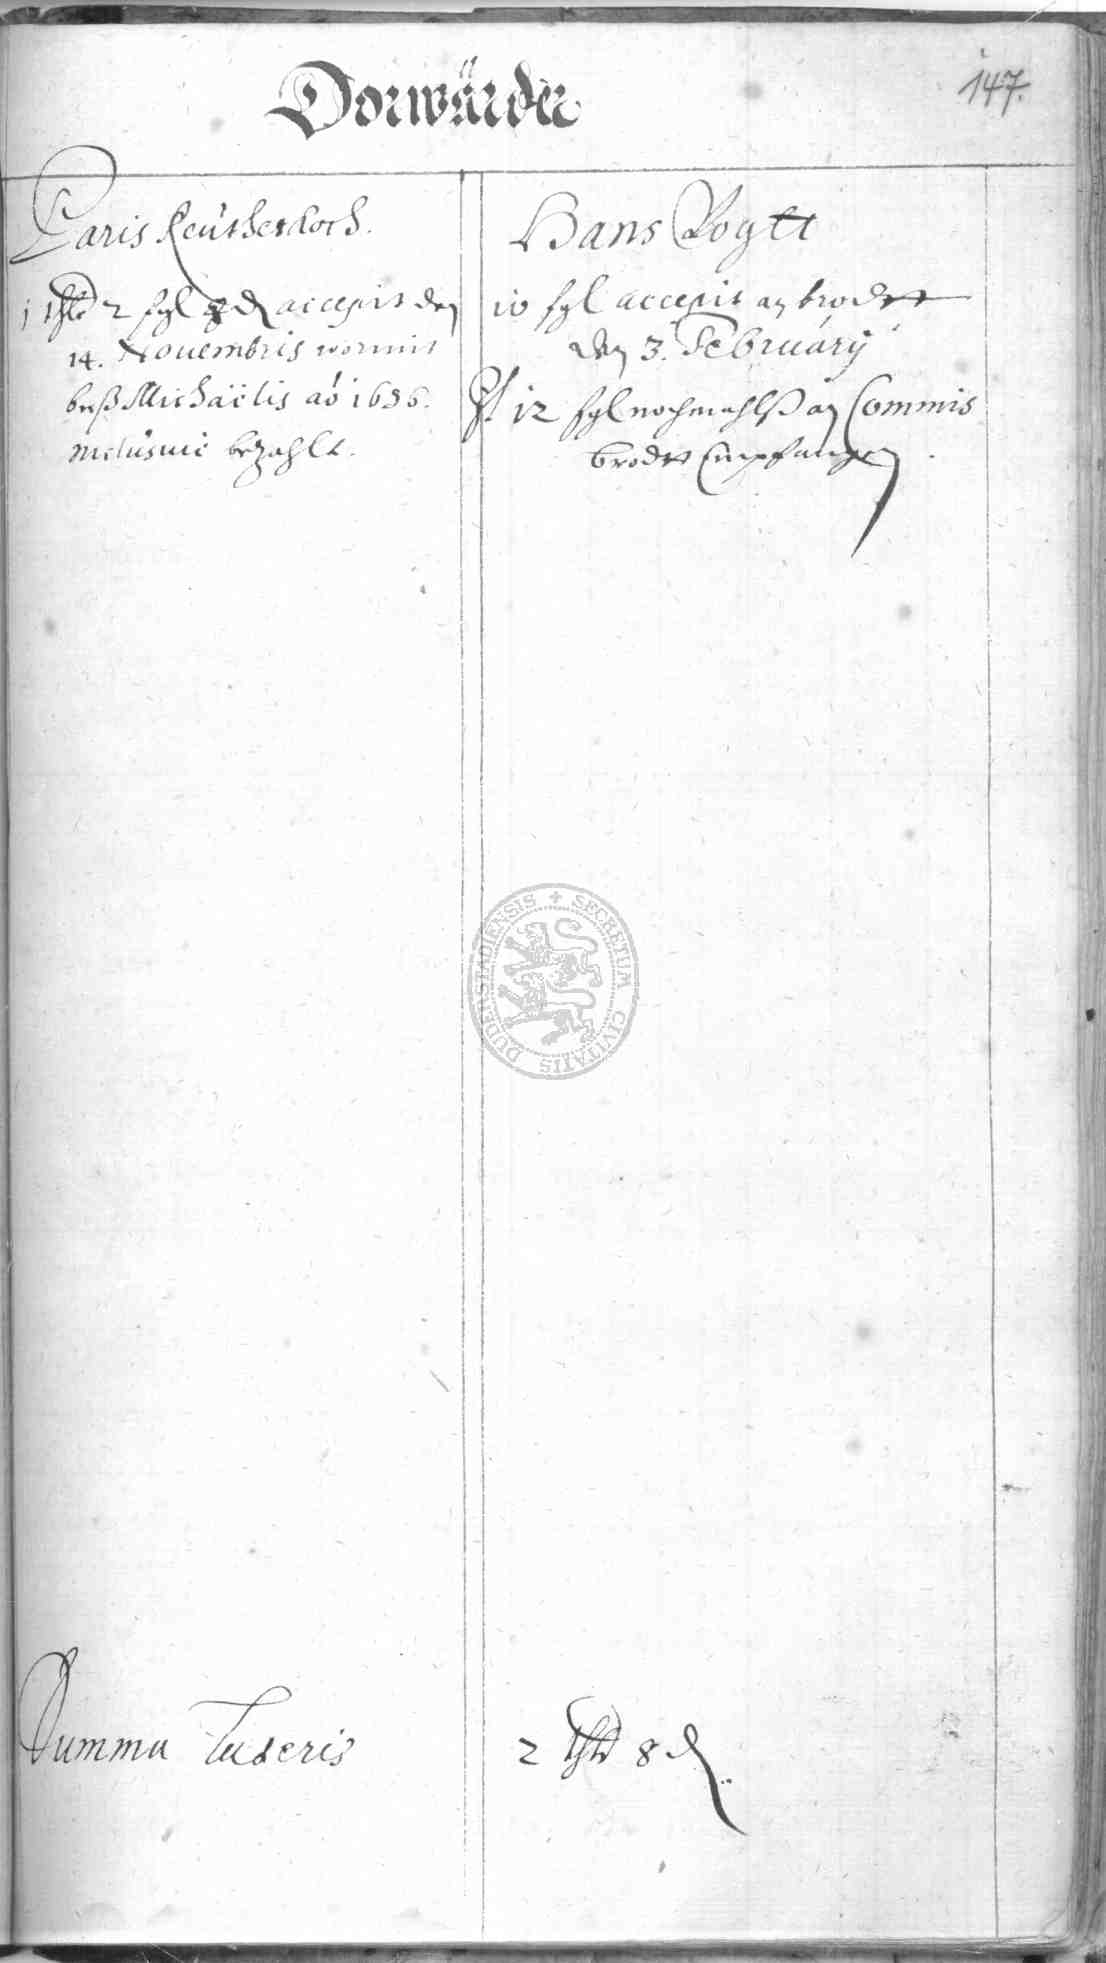 147.
Dorwärder
Paris Reütherdoch.
1 thlr 2 sgl 8 d accepit den
14. Novembris wormit
beß Michaëlis aõ 1636.
inclusivè bezahlt.
Hans Vogtt
10 sgl accepit an brodtt
den 3. February
It 12 sgl nochmahlß an Commis
brodtt Empfangen
DUDERSTADIENSIS + SECRETUM CIVITATIS
Summa Lateris 2 thlr 8 d